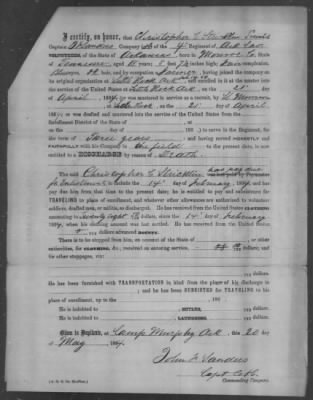 I certify, on honor, that Christopher C. Stricklin
Captain Company "C" of the 4" Regiment of Ark Cav
VOLUNTEERS, of the State of Arkansas born in Monroe Co
Tennessee aged 18 years; 5 feet inches high; Fair complexion,
Blue eyes, hair, and by occupation a Farmer, having joined the company
on its original organization at Little Rock Ark and enrolled in it at the muster into
the service of the United States at Little Rock Ark, on the 21" day of
April, 1864 was mustered in service as a recruit, by
at Little Rock, on the 21" day of April
186 ; or was drafted and mustered into the service of the United States from the
Enrollment District of the State of
on the day of 186 ) to serve in the Regiment, for
the term of Three years; and having served HONESTLY and
FAITHFULLY with his Company in the field to the present date, is now
entitled to a DISCHARGE by reason of Death.
The said Christopher C Stricklin
for Enlistment to the 14th February 1864, and has
pay due him from that time to the present date; he is entitled to pay and subsistence for
TRAVELING to place of enrollment, and whatever other allowances are authorized to volunteer
soldiers, drafted men, or militia, so discharged. He has received from the United States CLOTHING
amounting to twenty eight dollars, since the 14" day of February
1864, when his clothing account was last settled. He has received from the United States
dollars advanced BOUNTY.
There is to be stopped from him, on account of the State of , or other
authorities, for CLOTHING, &c., received on entering service, dollars; and
for other stoppages, viz:
dollars.
He has been furnished with TRANSPORTATION in kind from the place of his discharge to
; and he has been SUBSISTED for TRAVELING to his
place of enrollment, up to the , 186
He is indebted to , SUTLER, dollars.
He is indebted to , LAUNDRESS, dollars.
Given in Duplicate, at Camp Murphy Ark, this 20
day of May 1864.
John F. Sanders
Capt Co C.
Commanding Company.